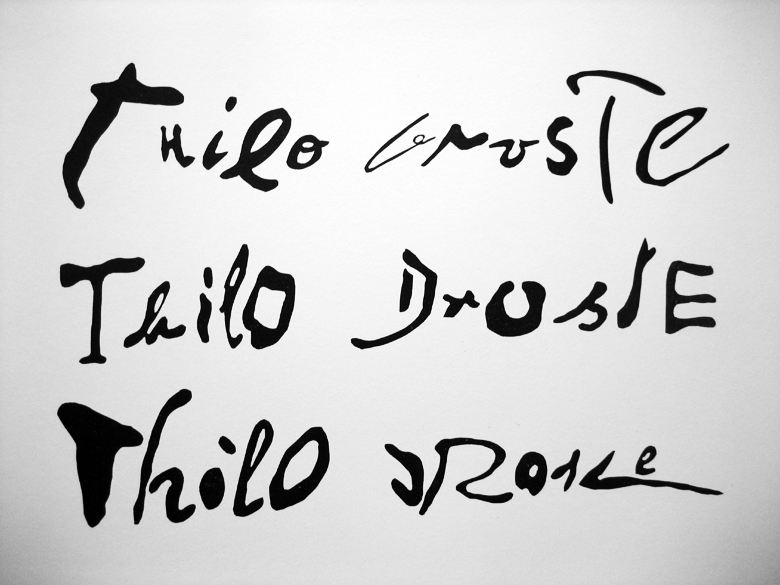 Thilo DrosTe
Thilo DrosTE
Thilo DRoste